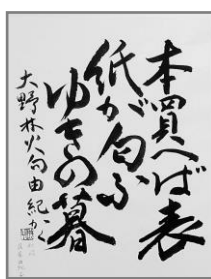 本買へば表
紙が匂ふ
ゆきの暮
大野林火句由紀かく